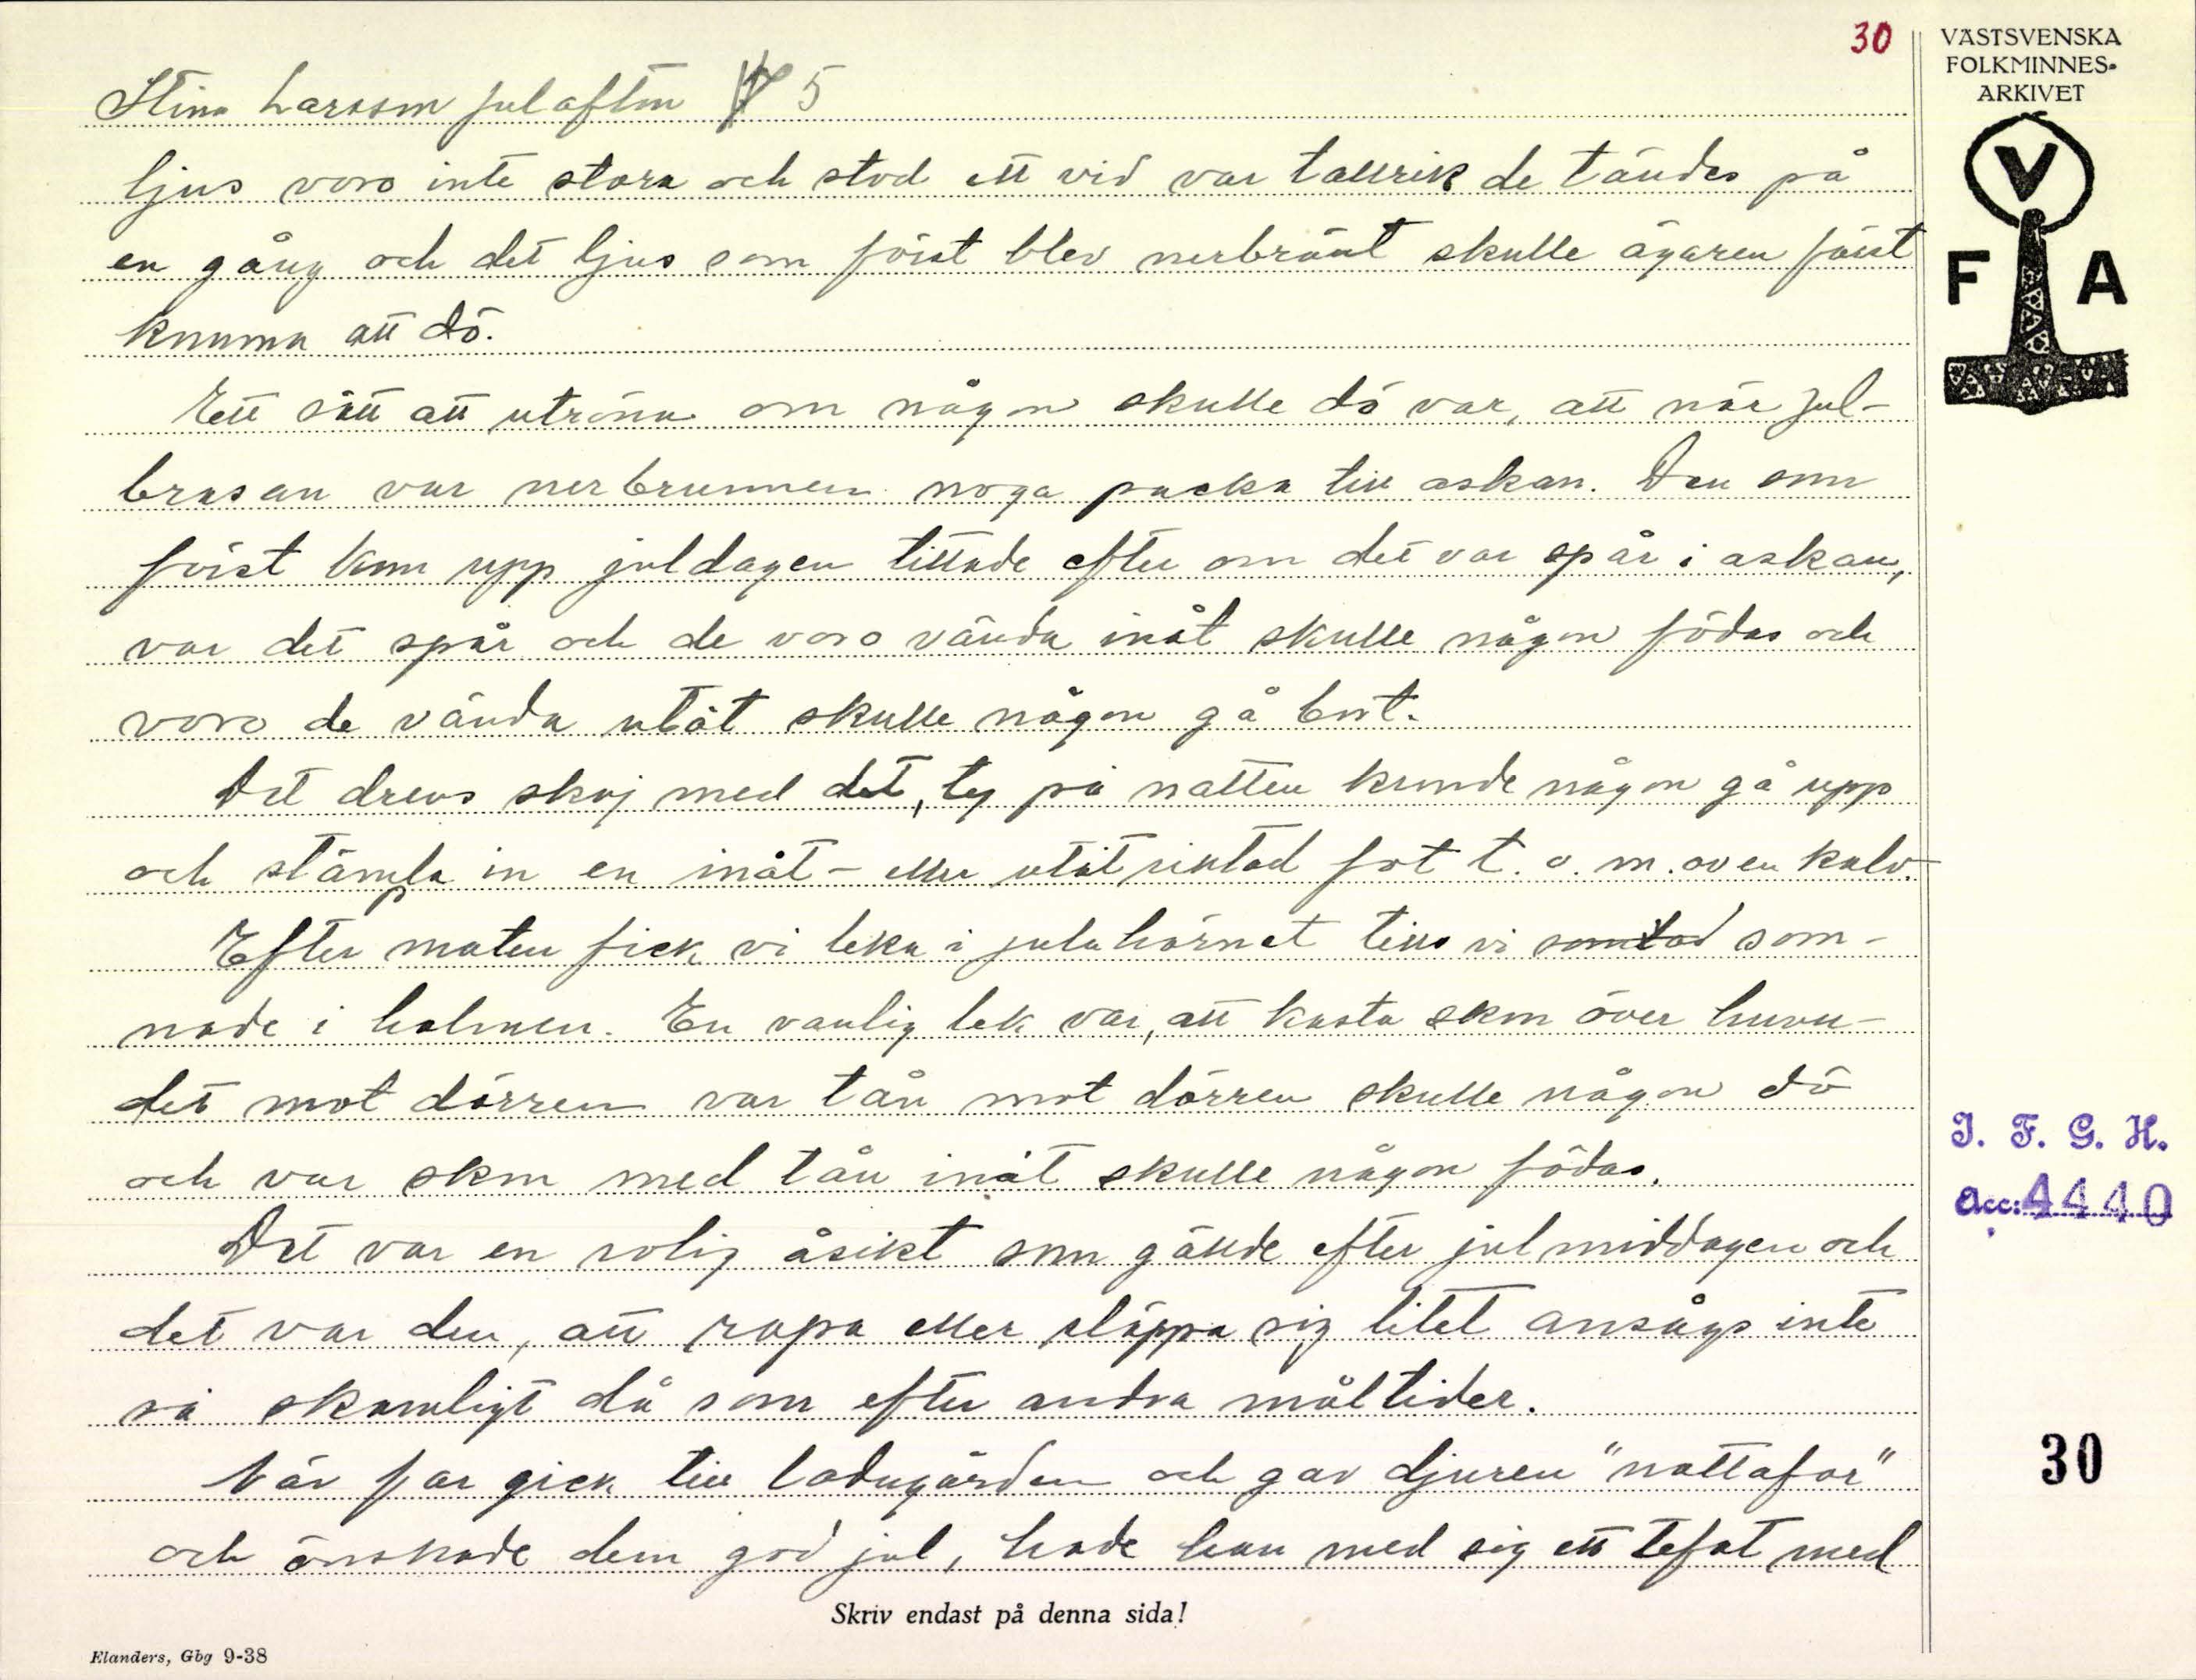 30
VÄSTSVENSKA
FOLKMINNES-
ARKIVET
V
F A
Stina Larsson julafton 5
ljus voro inte stora och stod ett vid var tallrik de tändes på
en gång och det ljus som först blev nerbränt skulle ägaren först
komma att dö.
Ett sätt att utröna om någon skulle dö var, att när jul-
brasan var nerbrunnen noga packa till askan. Den som
först kom upp juldagen tittade efter om det var spår i askan,
var det spår och de voro vända inåt skulle någon födas och
voro de vända utåt skulle någon gå bort.
Det drevs skoj med det, ty på natten kunde någon gå upp
och stämpla in en inåt- eller utåtriktad fot t. o. m. av en kalv.
Efter maten fick vi leka i julahörnet tills vi som-
nade i halmen. En vanlig lek var, att kasta skon över huvu-
det mot dörren var tån mot dörren skulle någon dö
och var skon med tån inåt skulle någon födas.
Det var en rolig åsikt som gällde efter julmiddagen och
det var den, att rapa eller släppa sig litet ansågs inte
så skamligt då som efter andra måltider.
När far gick till ladugården och gav djuren "nattafor"
och önskade dem god jul, hade han med sig ett tefat med
Skriv endast på denna sida!
Elanders, Gbg 9-38
I. F. G. H.
Acc: 4440
30